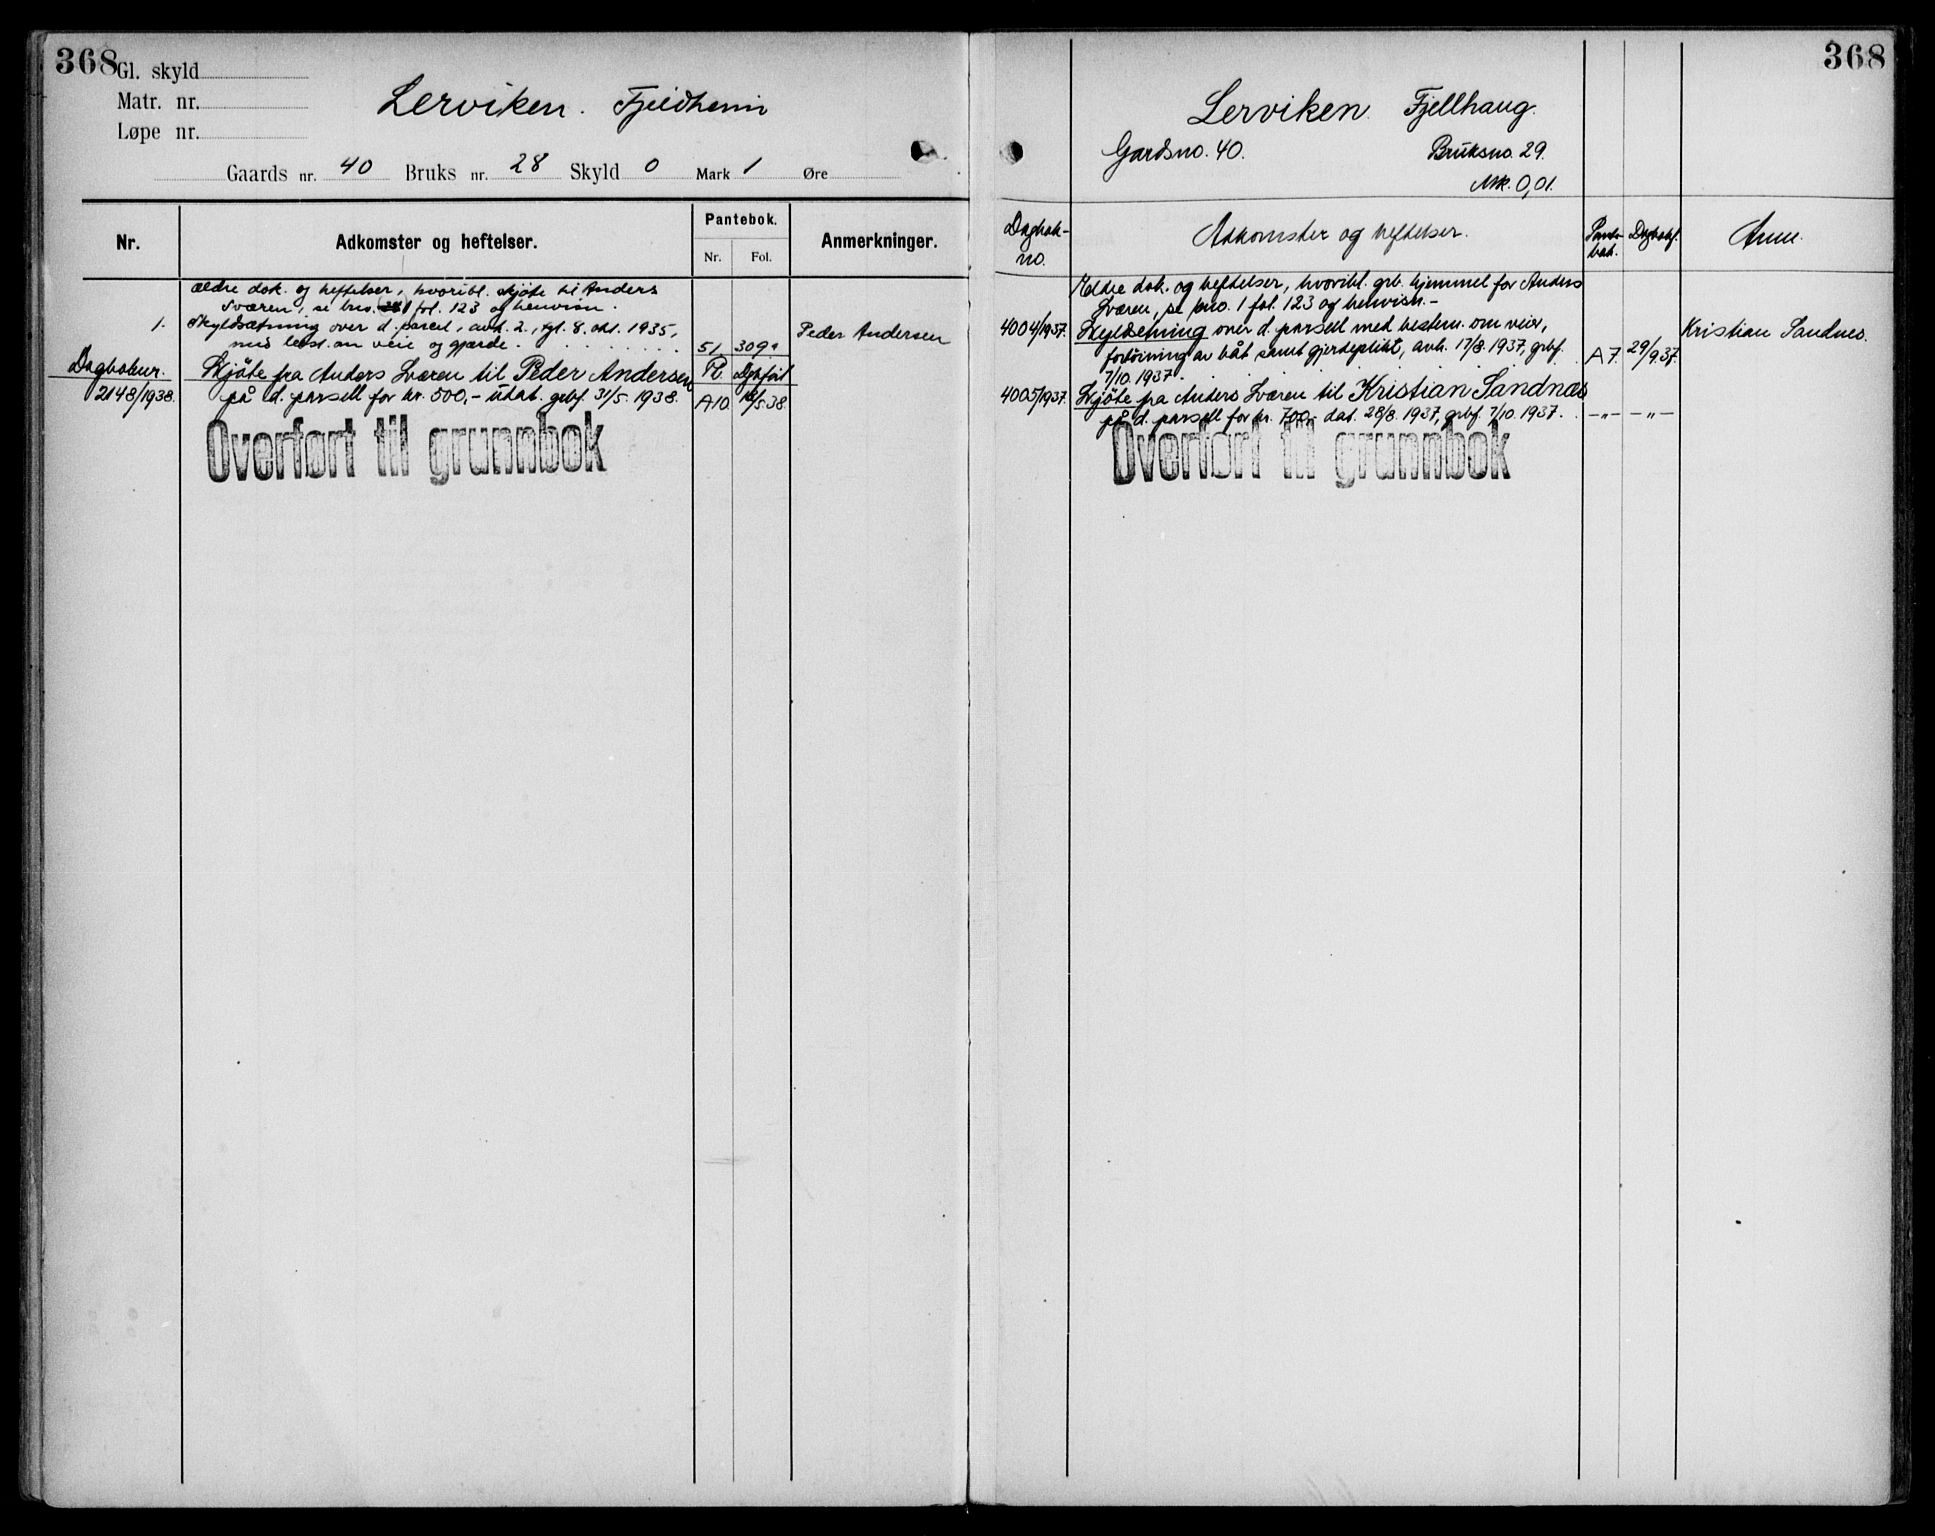 368
Gl. skyld
Matr. nr.
Løpe nr.
Lerviken. Fjeldheim
Gaards nr. 40 Bruks nr. 28 Skyld 0 Mark 1 Øre
Nr.
Adkomster og heftelser.
Pantebok.
Nr. Fol.
Anmerkninger.
ældre dok. og heftelser, hvoribl. skjöte til Anders
Sværen, se bno. 1 fol. 123 og henvisn.
1. Skyldsætning over d. parcel, avh. 2., tgl. 8. okt. 1935,
med best. om veie og gjærde. 51 309a Peder Andersen
Dagboknr. Skjöte fra Anders Sværen til Peder Andersen Pb. Dgbført
2148/1938. på d. parsell for kr. 500,- udat. grbf. 31/5. 1938. A10. /5.38.
Overført til grunnbok
368
Lerviken. Fjellhaug.
Gardsno. 40. Bruksno. 29.
Mk. 0,01.
Dagbok-
no.
Adkomster og heftelser.
Pante-
bok.
Dagbokf.
Anm.
Eldre dok. og heftelser, hvoribl. grb. hjemmel for Anders
Sværen, se bno. 1 fol. 123 og henvisn.-
4004/1937. Skyldsetning over d. parsell med bestem. om veier, Kristian Sandnes.
fortöining av båt samt gjerdeplikt, avh. 17/8. 1937, grbf. A 7. 29/9.37.
7/10. 1937.
4005/1937. Skjöte fra Anders Sværen til Kristian Sandnæs
på d. parsell for kr. 700,- dat. 28/8. 1937, grbf. 7/10. 1937. -"- -"-
Overført til grunnbok